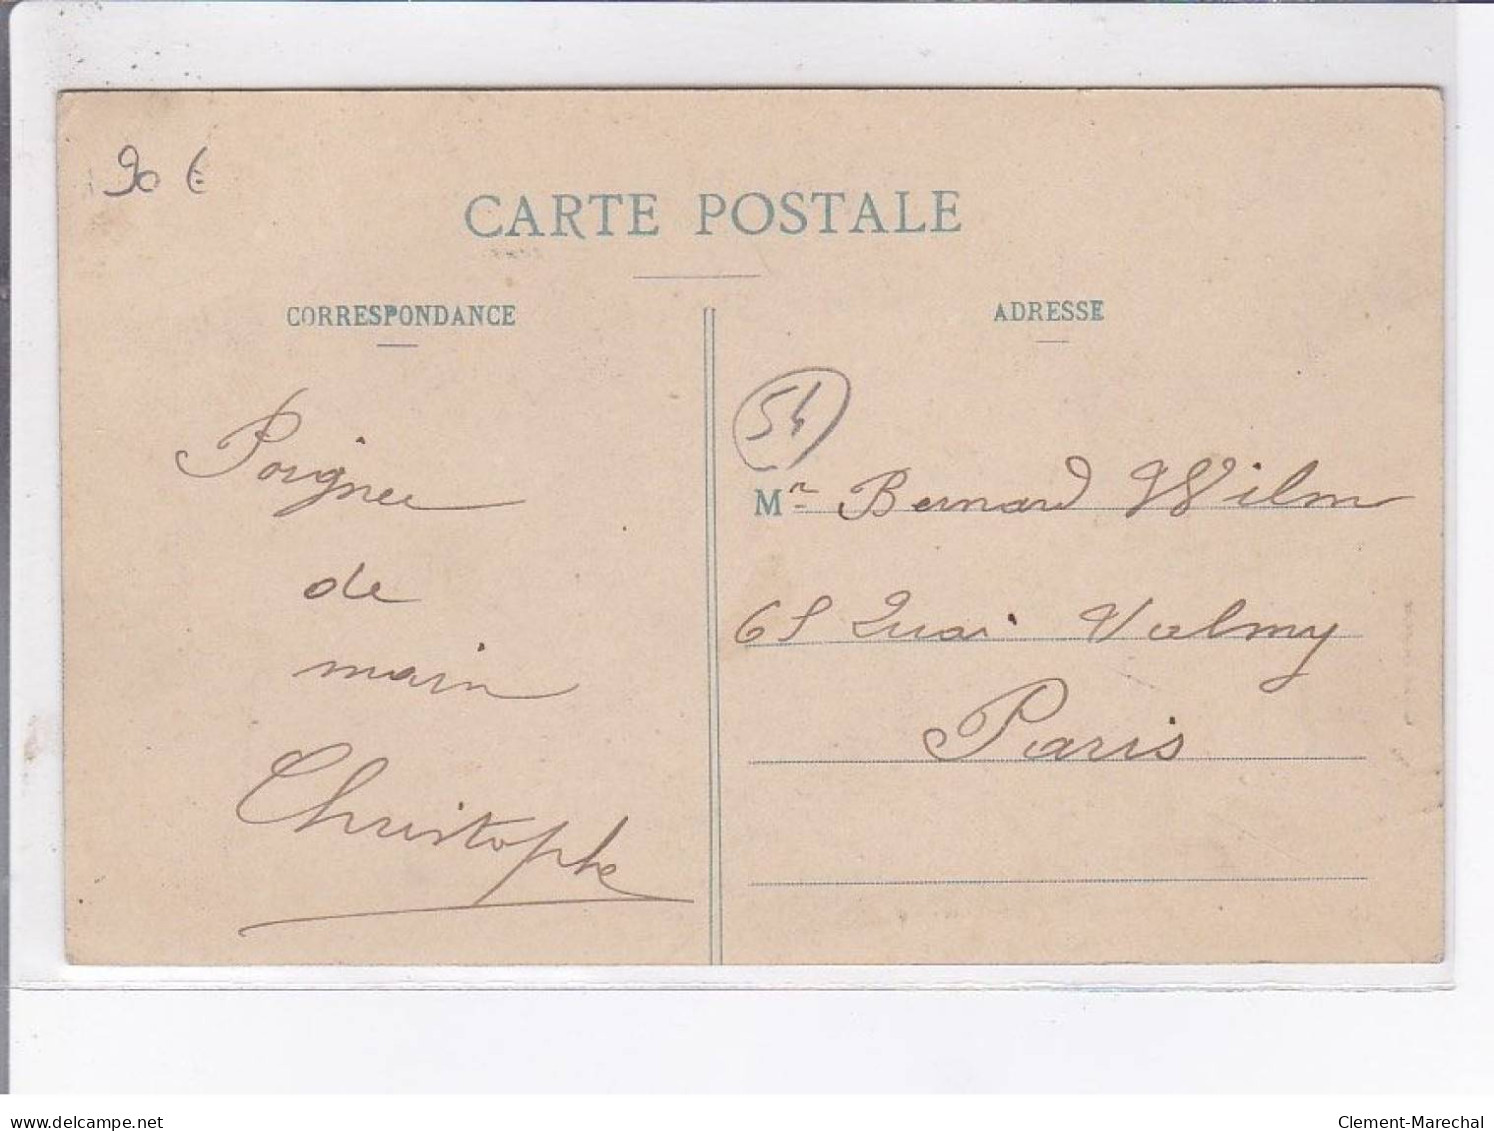 90 €
CARTE POSTALE
CORRESPONDANCE
ADRESSE
Poignee
de
main
Christophe
54
Mr Bernard Wilm
65 Quai Valmy
Paris
delcampe.net
Clement-Marechal